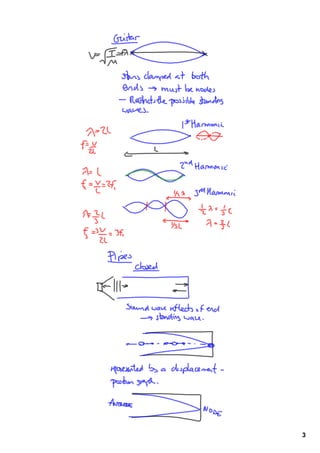 Guitar
V = √T/μ = fλ
strings clamped at both
ends → must be nodes
- Restricts the possible standing
waves.
1st Harmonic
λ=2L
f=V/2L
L
2nd Harmonic
λ=L
f₂=V/L=2f₁
⅓L 3rd Harmonic
½λ=⅓L
λ=⅔L
⅓L
λ=⅔L
f₃=3V/2L=3f₁
Pipes
closed
Sound wave reflects off end
→ standing wave.
represented by a displacement -
position graph.
ANTINODE
NODE
3